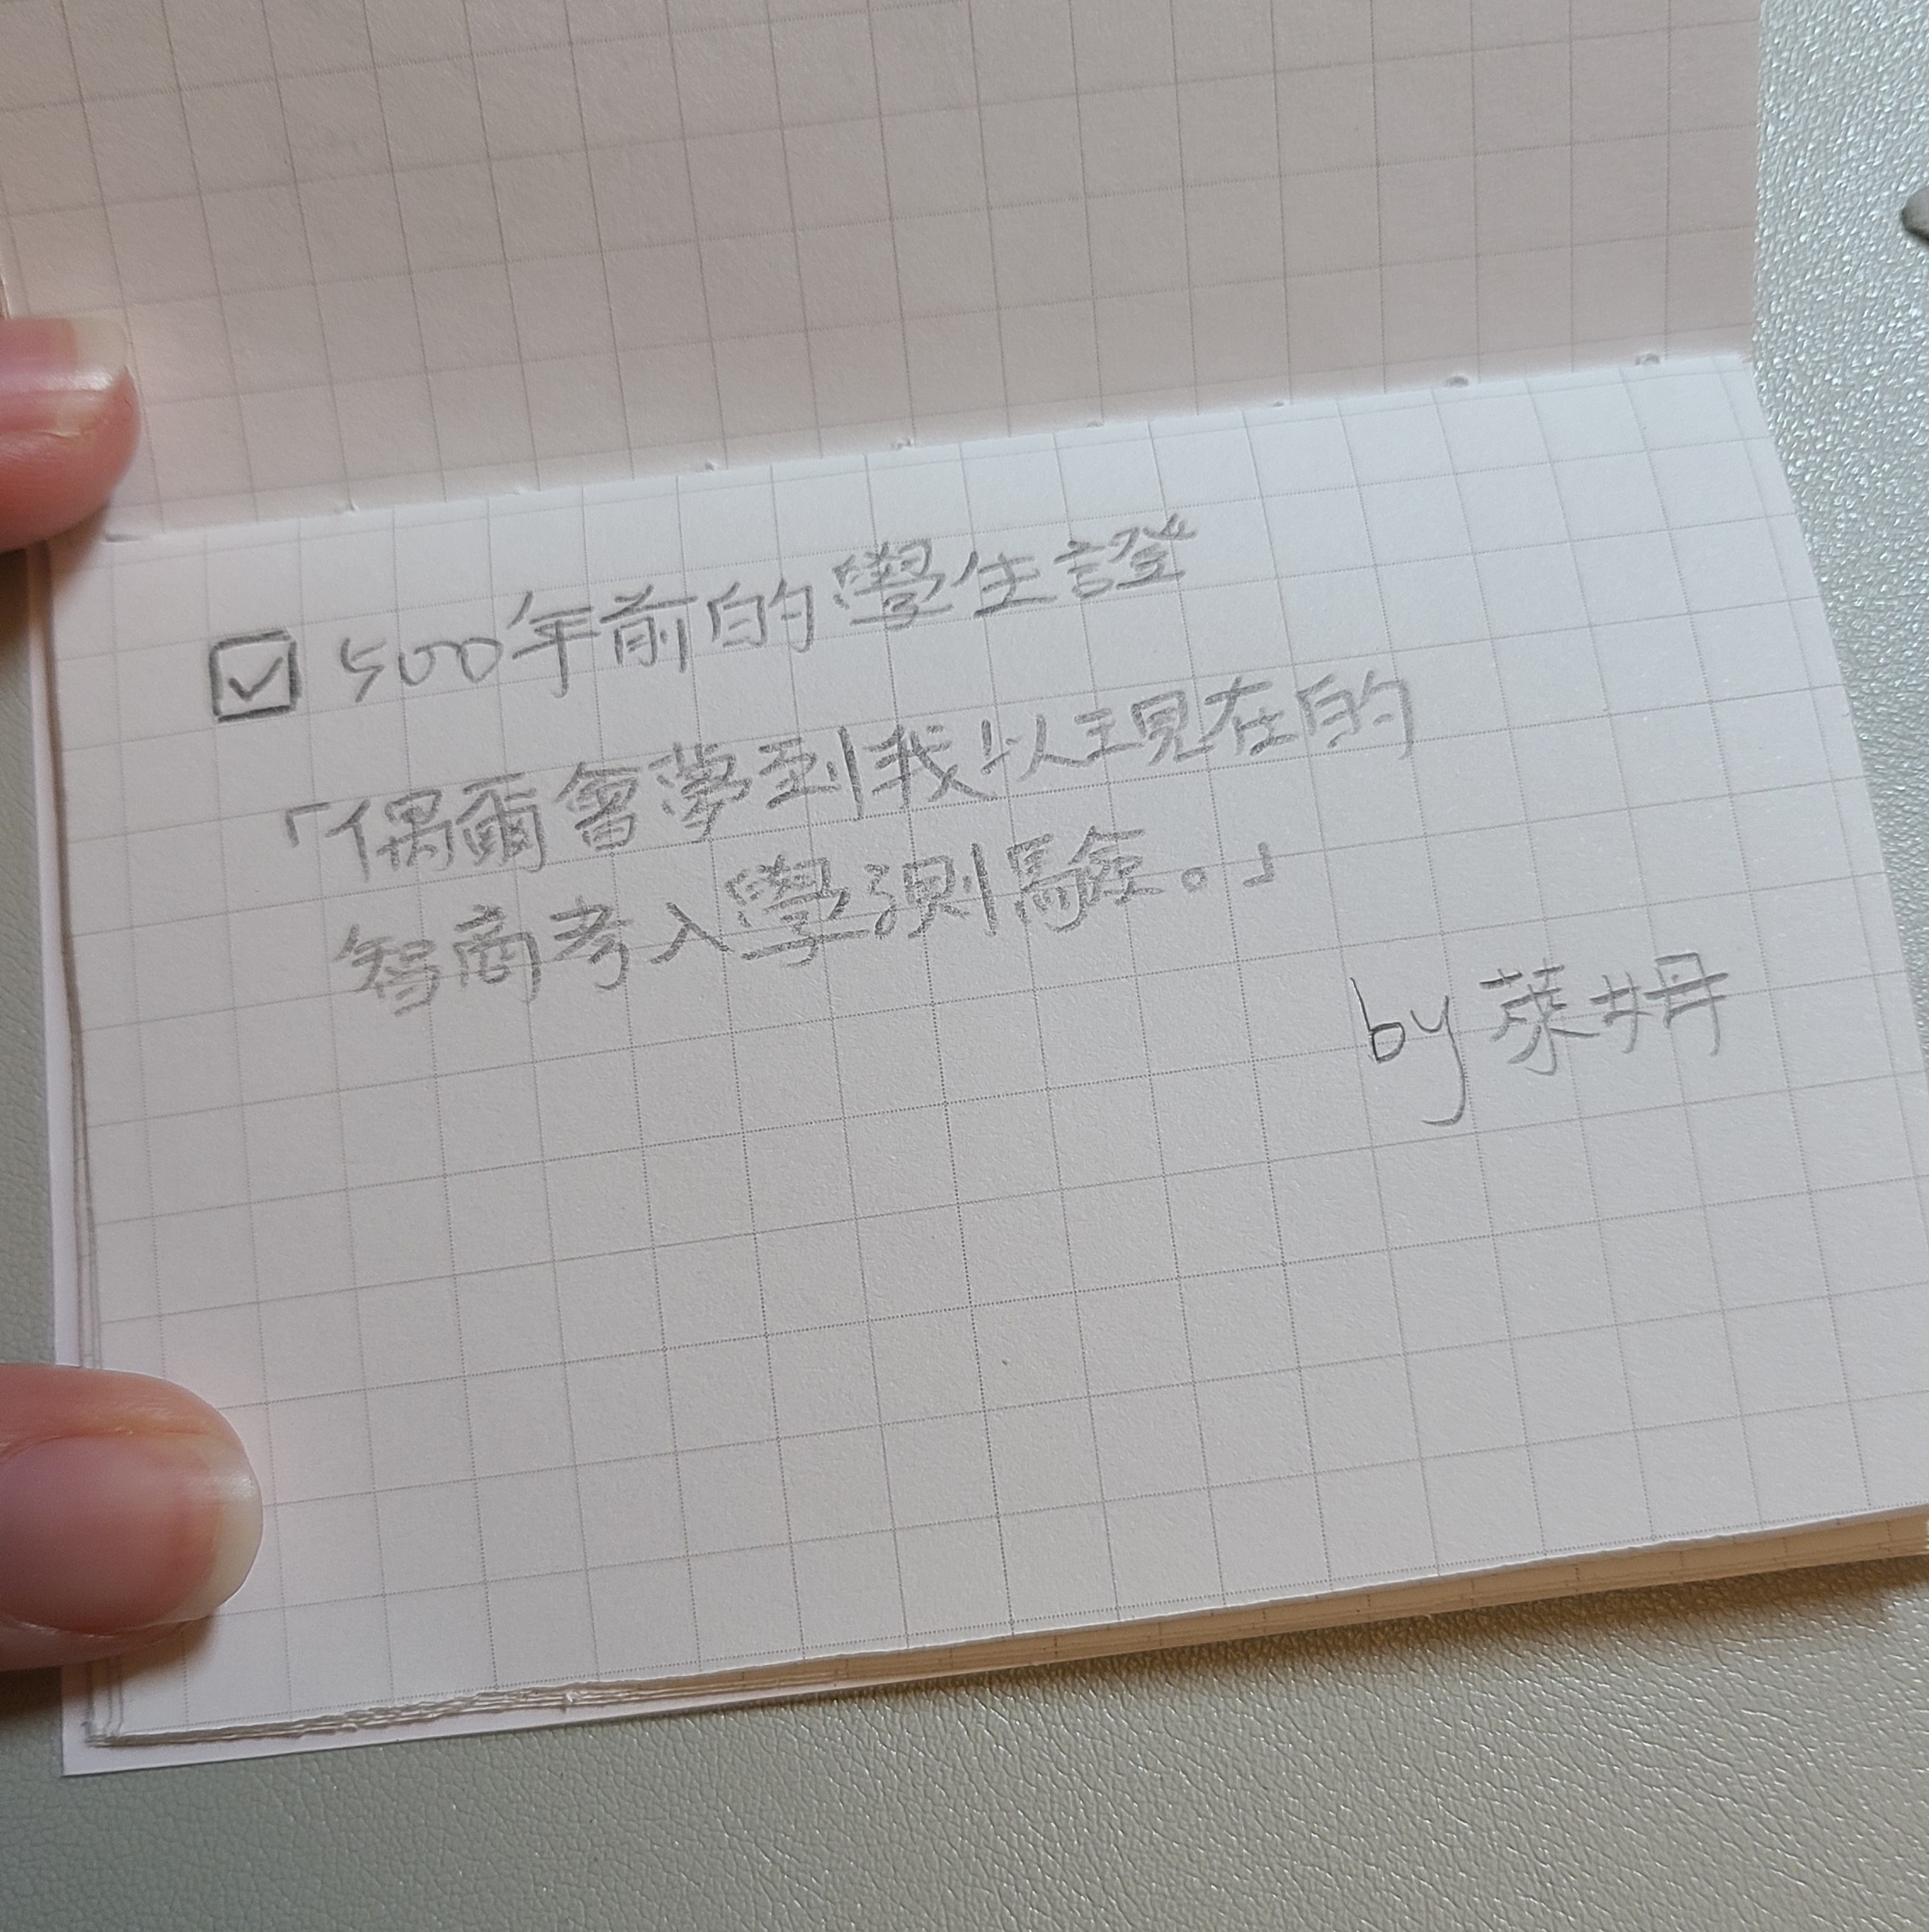 ☑ 500年前的學生證
「偶爾會夢到我以現在的
智商考入學測驗。」
by 萊姆